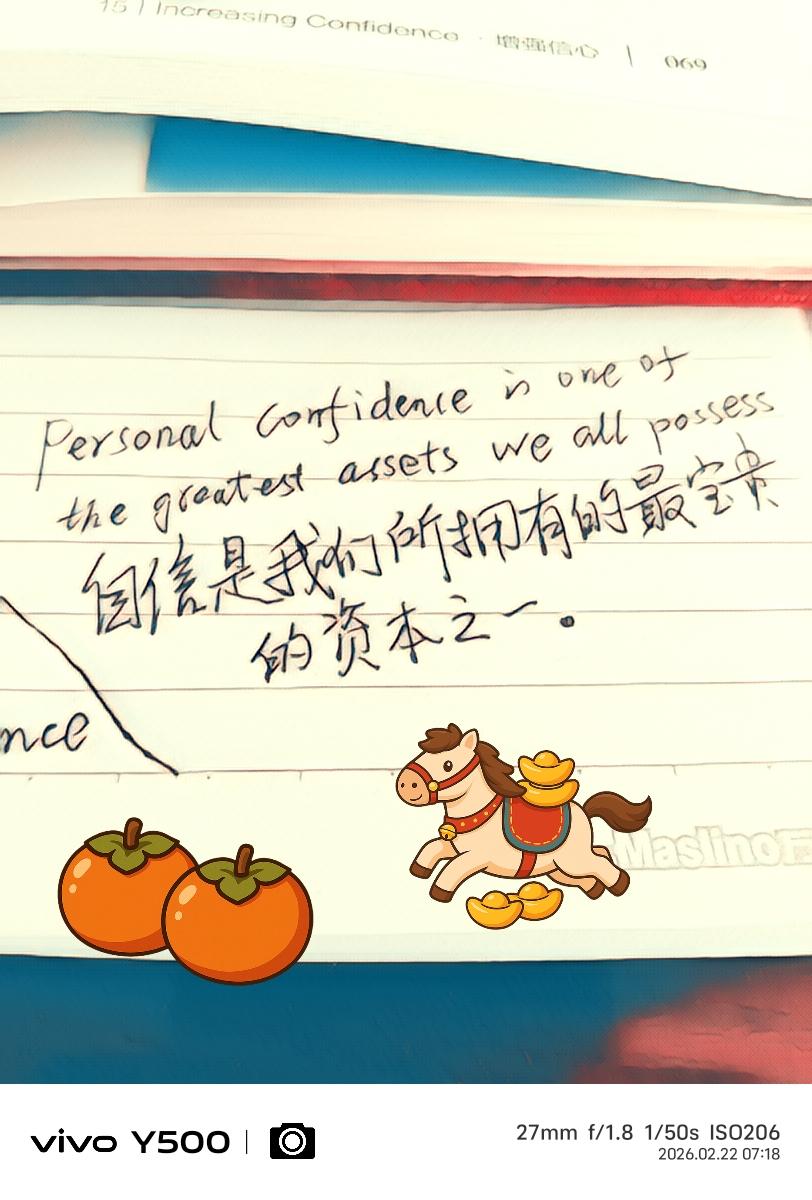 15 | Increasing Confidence · 增强信心 | 069
Personal confidence is one of
the greatest assets we all possess
自信是我们所拥有的最宝贵
的资本之一.
nce
Maslino
vivo Y500
27mm f/1.8 1/50s ISO206
2026.02.22 07:18